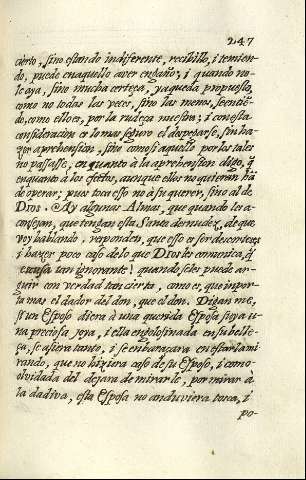 247
cierto, sino estando indiferente, recibillo, i temien-
do, puede en aquello aver engaño; i quando no-
le aya, sino mucha certeça, ya queda propuesto,
como no todas las veces, sino las menos, se entie-
de, como ello es, por la rudeça nuestra; i con esta
consideracion es lo mas seguro el despegarse, sin ha-
zer aprehension, sino como si aquello por las tales
no passasse, en quanto à la aprehension digo, q̃
en quanto à los efectos, aunque ellos no quieran hã
de operar; pues toca esso no à su querer, sino al de
Dios. Ay algunas Almas, que quando les a-
consejan, que tengan esta Santa desnudez, de que
voy hablando, responden, que esso es ser descorteses
i hazer poco caso de lo que Dios les comunica, q̃
escusa tan ignorante! quando se les puede ar-
guir con verdad tan cierta, como es, que impor-
ta mas el dador del don, que el don. Digan me,
si un Esposo diera à una querida Esposa suya u-
na preciosa joya, i ella engolosinada en su belle-
ça, se asiera tanto, i se embaraçara en estarla mi-
rando, que no hiziera caso de su Esposo, i como
olvidada del dexara de mirarle, por mirar à
la dadiva, esta Esposa no anduviera tosca, i
po-